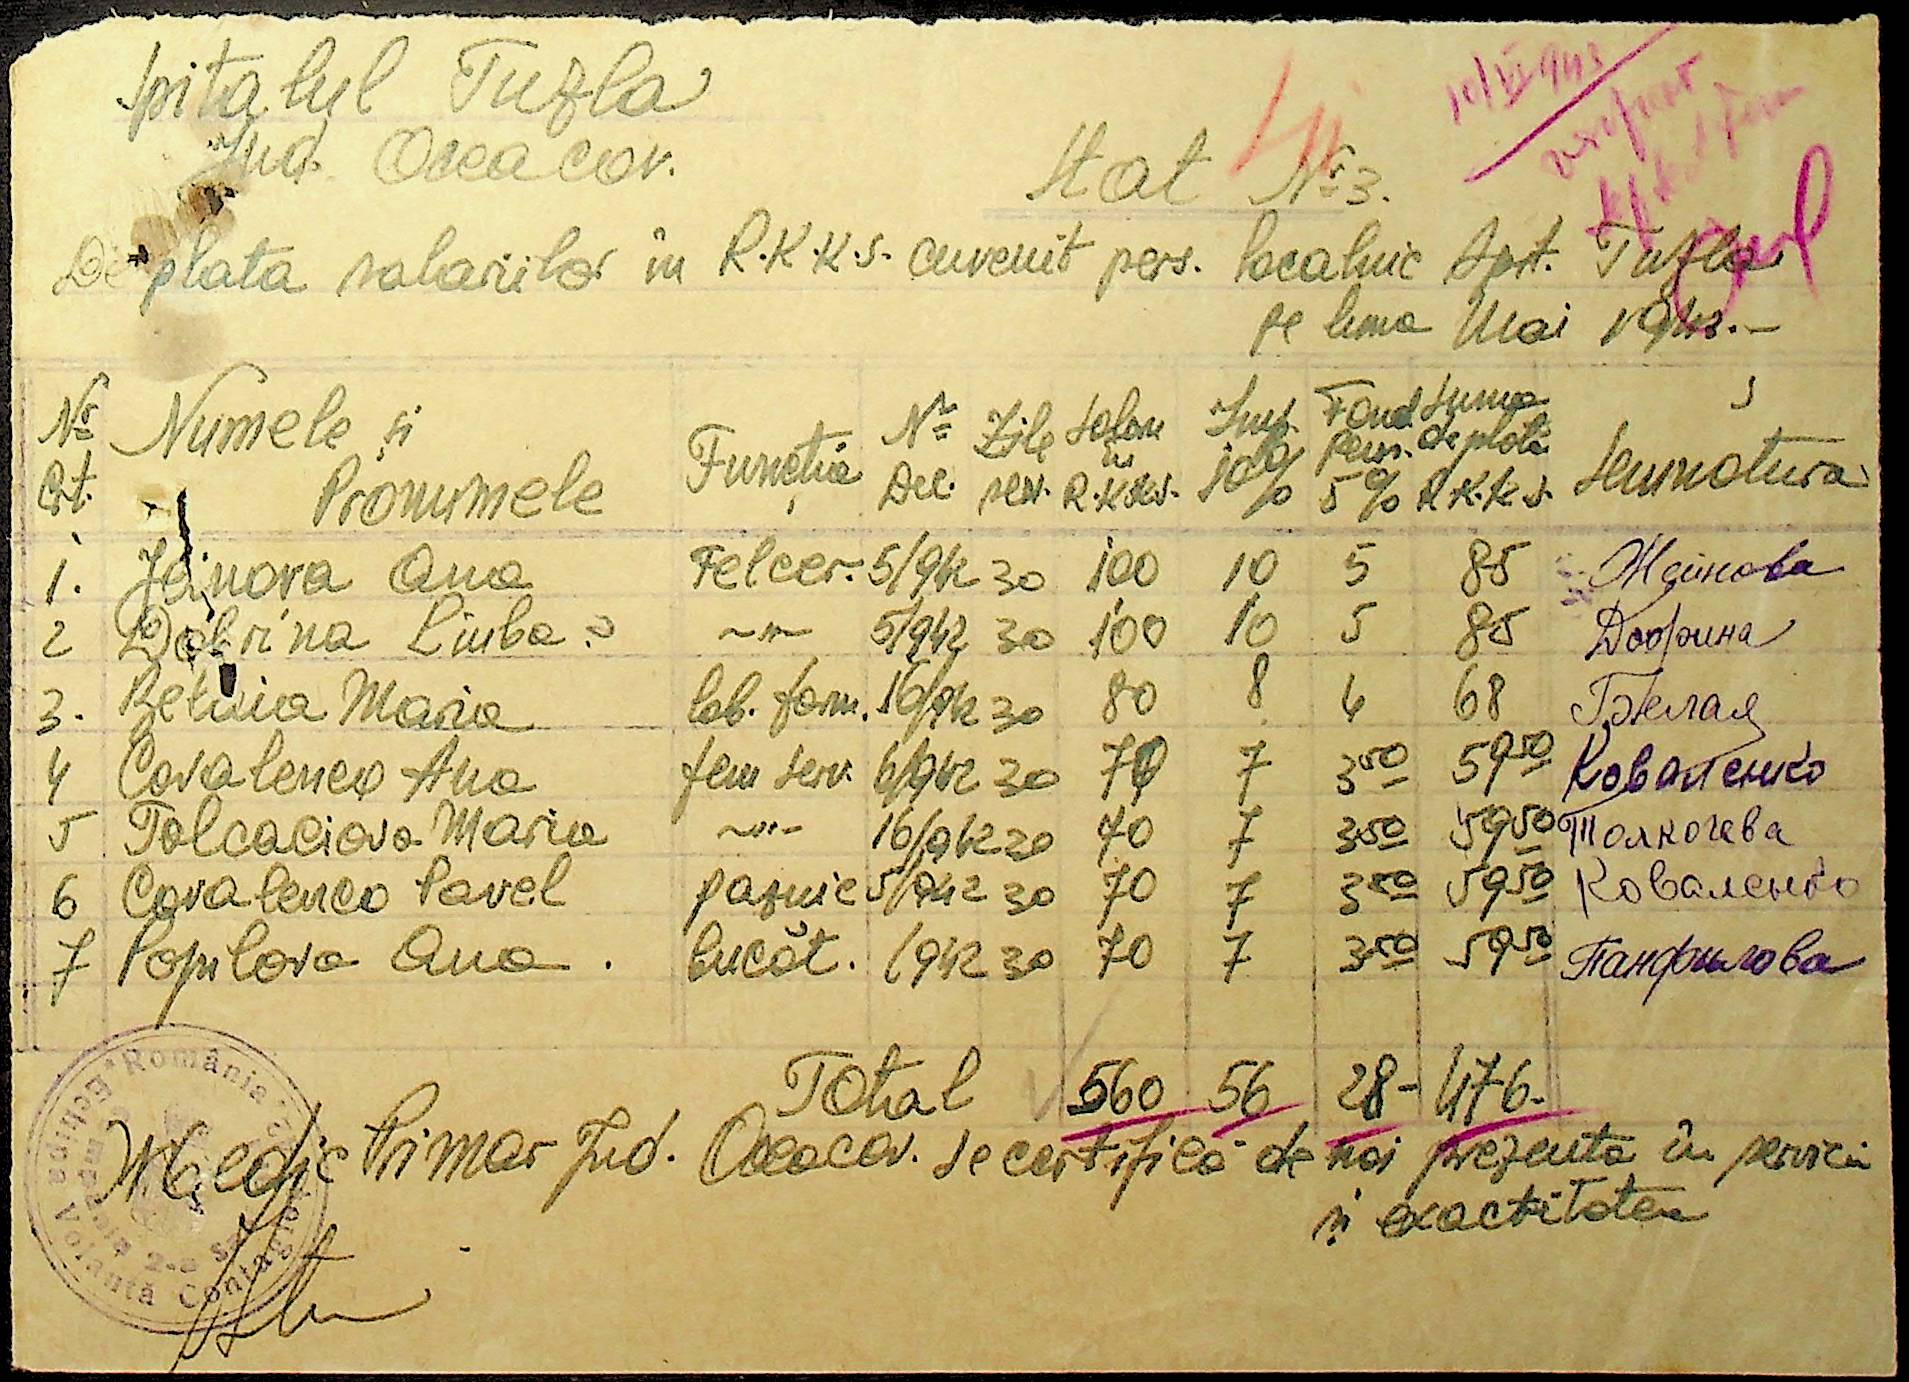 Spitalul Tuzla
Jud. Oceacov.
Stat Nr 3.
De plata salariilor în R.K.K.S. cuvenit pers. localnic Spt. Tuzla
pe luna Mai 1943.-
Nr Crt. Numele și Pronumele Funcția Nr Dec. Zile serv. Salare în R.K.K.S. Imp. 10% Fond pens. 5% Suma de plată R.K.K.S. Semnatura
1. Jainova Ana Felcer. 5/942 30 100 10 5 85 Жейнова
2 Dobrina Liuba -"- 5/942 30 100 10 5 85 Добрина
3. Maria lab. farm. 16/942 30 80 8 4 68 Белая
4 Covalenco Ana fem serv. 6/942 30 70 7 3 50 59 50 Коваленко
5 Tolcaciova Maria -"- 16/942 30 70 7 3 50 59 50 Толкочева
6 Covalenco Pavel paznic 5/942 30 70 7 3 50 59 50 Коваленко
7 Popilova Ana bucăt. 1942 30 70 7 3 50 59 50 Панфилова
Total 560 56 28- 476.-
Medic Primar Jud. Oceacov. Se certifică de noi prezenta în serviciu
și exactitatea
România
Echipa Volantă Contagioși
Compania 2-a